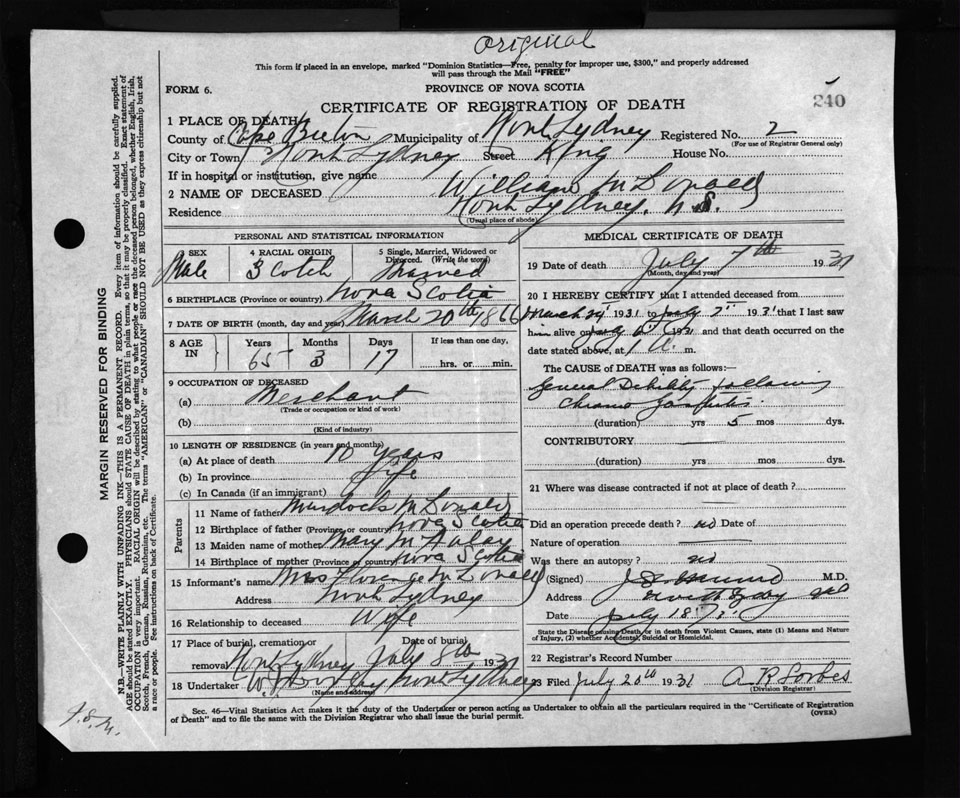 Original
This form if placed in an envelope, marked "Dominion Statistics—Free, penalty for improper use, $300," and properly addressed
will pass through the Mail "FREE"
FORM 6.
PROVINCE OF NOVA SCOTIA
CERTIFICATE OF REGISTRATION OF DEATH
240
1 PLACE OF DEATH
County of Cape Breton Municipality of North Sydney Registered No. 2
(For use of Registrar General only)
City or Town North Sydney Street King House No.
If in hospital or institution, give name
2 NAME OF DECEASED William McDonald
Residence North Sydney, N.S.
(Usual place of abode)
PERSONAL AND STATISTICAL INFORMATION
3 SEX Male
4 RACIAL ORIGIN Scotch
5 Single, Married, Widowed or Divorced. (Write the word) Married
6 BIRTHPLACE (Province or country) Nova Scotia
7 DATE OF BIRTH (month, day and year) March 20th 1866
8 AGE IN Years 65 Months 3 Days 17 If less than one day, hrs. or min.
9 OCCUPATION OF DECEASED
(a) Merchant
(Trade or occupation or kind of work)
(b)
(Kind of industry)
10 LENGTH OF RESIDENCE (in years and months)
(a) At place of death 10 years
(b) In province Life
(c) In Canada (if an immigrant)
Parents
11 Name of father Murdock McDonald
12 Birthplace of father (Province or country) Nova Scotia
13 Maiden name of mother Mary McAulay
14 Birthplace of mother (Province or country) Nova Scotia
15 Informant's name Mrs Florence McDonald
Address North Sydney
16 Relationship to deceased Wife
17 Place of burial, cremation or removal North Sydney Date of burial July 8th 1931
18 Undertaker North Sydney
(Name and address)
MEDICAL CERTIFICATE OF DEATH
19 Date of death July 7th 1931
(Month, day and year)
20 I HEREBY CERTIFY that I attended deceased from
March 1931 to July 7" 1931 that I last saw
him alive on July 1931 and that death occurred on
date stated above, at 1 A. m.
The CAUSE OF DEATH was as follows:—
General Debility following
Chronic Gastritis.
(duration) yrs 5 mos dys.
CONTRIBUTORY
(duration) yrs mos dys.
21 Where was disease contracted if not at place of death?
Did an operation precede death? no Date of
Nature of operation
Was there an autopsy? no
(Signed) M.D.
Address North Sydney
Date July 18
State the Disease causing Death, or in death from Violent Causes, state (1) Means and Nature
of Injury, (2) whether Accidental, Suicidal or Homicidal.
22 Registrar's Record Number
23 Filed July 20th 1931 A R Forbes
(Division Registrar)
Sec. 46—Vital Statistics Act makes it the duty of the Undertaker or person acting as Undertaker to obtain all the particulars required in the "Certificate of Registration
of Death" and to file the same with the Division Registrar who shall issue the burial permit.
(OVER)
MARGIN RESERVED FOR BINDING
N.B.—WRITE PLAINLY WITH UNFADING INK—THIS IS A PERMANENT RECORD. Every item of information should be carefully supplied.
AGE should be stated EXACTLY. PHYSICIANS should STATE CAUSE OF DEATH in plain terms, so that it may be properly classified. Exact statement of
OCCUPATION is very important. RACIAL ORIGIN will be described by stating to what people or race the deceased person belonged, whether English, Irish,
Scotch, French, German, Russian, Ruthenian, etc. The terms "AMERICAN" or "CANADIAN" SHOULD NOT BE USED as they express citizenship but not
a race or people. See instructions on back of Certificate.